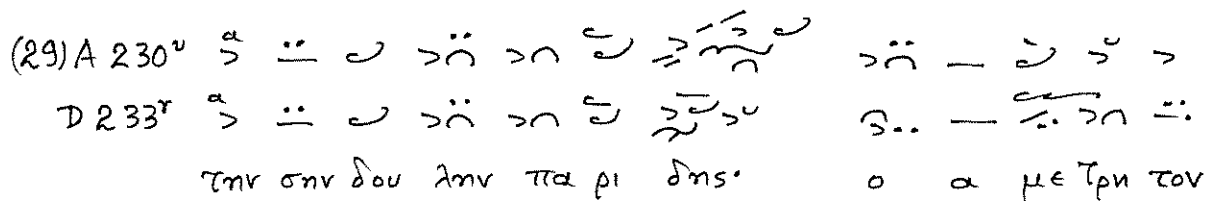 (29) A 230ᵛ
D 233ʳ
την σην δου λην πα ρι δης· ο α με τρη τον